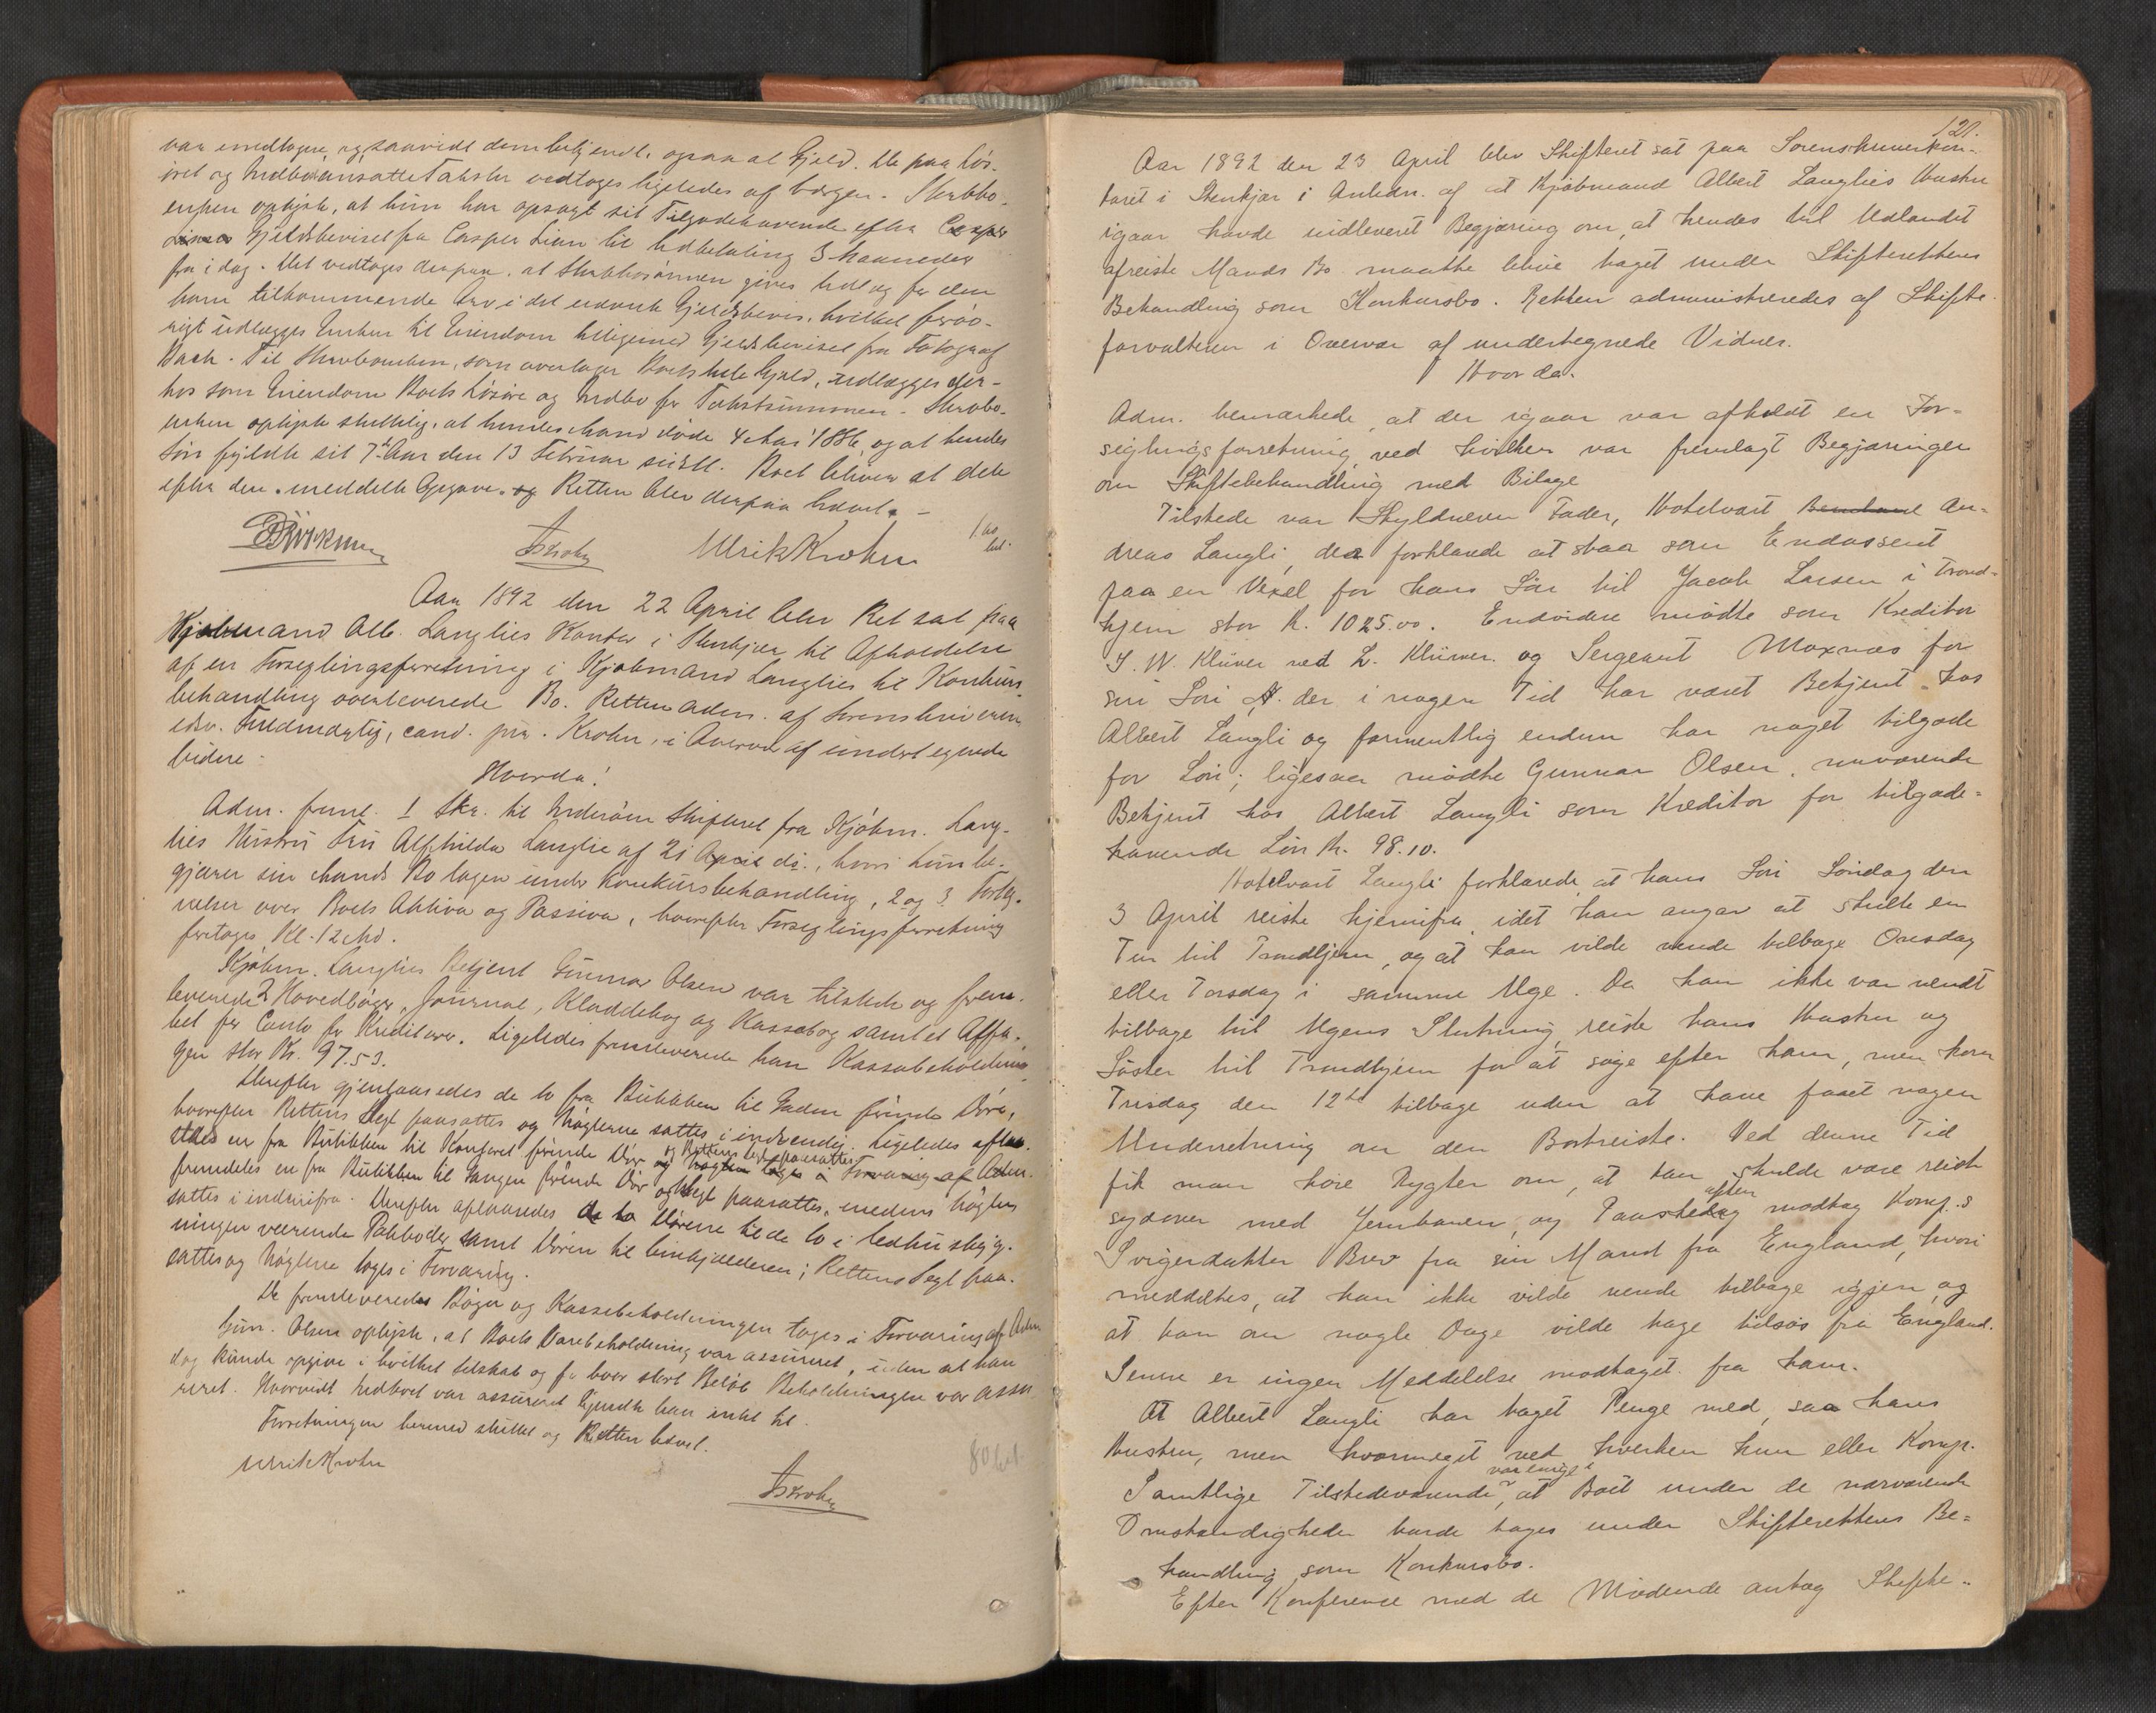 var medtagne, og saavidt dem bekjendt, ogsaa al Gjeld. De paa Løs-
øret og Indboet ansatte Takster vedtoges ligeledes af Værgen. Skrabbo-
enken oplyste, at hun har opsagt sit Tilgodehavende efter Casper
Liens Gjeldsbeviset fra Casper Lian til Udbetaling 3 Maaneder
fra idag. Det vedtoges derpaa, at Skrabbosønnen gives Udlæg for den
ham tilkommende Arv i det nævnte Gjeldsbevis, hvilket forøv-
rigt udlægges Enken til Eiendom tilligemed Gjeldsbeviset fra Fotograf
Bach. Til Skrabboenken, som overtager Boets hele Gjeld, udlægges der-
hos som Eiendom Boets Løsøre og Indbo for Takstsummen. Skrabo-
enken oplyste sluttelig, at hendes Mand døde 4 Mai 1886, og at hendes
Søn fyldte sit 7de Aar den 13 Februar sidstl. Boet bliver at dele
efter den meddelte Opgave. og Retten blev derpaa hævet. –
Ulrik Krohn
Aar 1892 den 22 April blev Ret sat paa
Kjøbmand Alb. Langlies Kontor i Stenkjær til Afholdelse
af en Forseglingsforretning i Kjøbmand Langlies til Konkurs-
behandling overleverede Bo. Retten adm. af Sorenskriverens
edsv. Fuldmægtig, cand. jur. Krohn, i Overvær af undertegnede
Vidne:
Hvorda!
Adm. freml. 1 Skr. til Inderøens Skifteret fra Kjøbm. Lang-
lies Hustru Fru Alfhilda Langlie af 21 April ds., hvori hun be-
gjærer sin Mands Bo tagen under Konkursbehandling, 2 og 3 Forteg-
nelser over Boets Aktiva og Passiva, hvorefter Forseglingsforretning
foretoges Kl. 12 Md.
Kjøbm. Langlies Betjent Gunnar Olsen var tilstede og frem-
leverede 2 Hovedbøger, Journal, Kladdebog og Kassabog samt et Alfa-
bet for Conto for Kreditorer. Ligeledes fremleverede han Kassabeholdnin-
gen stor Kr. 97.53.
Derefter gjenlaasedes de to fra Butikken til Gaden førende Døre,
hvorefter Rettens Segl paasattes og Nøglerne sattes i indvendig. Ligeledes aflaa-
sedes en fra Butikken til Kontoret førende Dør og Rettens Segl paasattes og Nøglen toges i Forvaring af Adm.
fremdeles en fra Butikken til Gangen førende Dør og Segl paasattes, medens Nøglen
sattes i indenifra. Derefter aflaasedes de to Dørene til de to i Uthusbyg-
ningen værende Pakboder samt Døren til Vinkjælderen; Rettens Segl paa-
sattes og Nøglerne toges i Forvaring.
De fremleverede Bøger og Kassebeholdningen toges i Forvaring af Adm.
Gun. Olsen oplyste, at Boets Varebeholdning var assureret, uden at han
dog kunde opgive i hvilket Selskab og for hvor stort Beløb Beholdningen var assu-
reret. Hvorvidt Indboet var assureret kjendte han intet til.
Forretningen hermed sluttet og Retten hævet.
Ulrik Krohn
121.
Aar 1892 den 23 April blev Skifteret sat paa Sorenskriverkon-
toret i Stenkjær i Anledn. af at Kjøbmand Albert Langlies Hustru
igaar havde indleveret Begjæring om, at hendes til Udlandet
afreiste Mands Bo maatte blive taget under Skifterettens
Behandling som Konkursbo. Retten administreredes af Skifte-
forvalteren i Overvær af undertegnede Vidner.
Hvorda.
Adm. bemærkede, at der igaar var afholdt en For-
seglingsforretning ved hvilken var fremlagt Begjæringen
om Skiftebehandling med Bilage
Tilstede var Skyldneren Fader, Hotelvært An-
dreas Langli, der forklarede at staa som Endossent
paa en Vexel for hans Søn til Jacob Larsen i Trond-
hjem stor K. 1025.00. Endvidere mødte som Kreditor
I. W. Klüver ved L. Klüver og Sergeant Moxnæs for
sin Søn A. der i nogen Tid har været Betjent hos
Albert Langli og formentlig endnu har noget tilgode
for Løn; ligesaa mødte Gunnar Olsen, nuværende
Betjent hos Albert Langli som Kreditor for tilgode-
havende Løn K. 98.10.
Hotelvært Langli forklarede, at hans Søn Søndag den
3 April reiste hjemifra, idet han angav at skulle en
Tur til Trondhjem, og at han vilde vende tilbage Onsdag
eller Torsdag i samme Uge. Da han ikke var vendt
tilbage til Ugens Slutning, reiste hans Hustru og
Søster til Trondhjem for at søge efter ham, men kom
Tirsdag den 12te tilbage uden at have faaet nogen
Underretning om den Bortreiste. Ved denne Tid
fik man høre Rygter om, at han skulde være reist
sydover med Jernbanen, og Paaskeaften modtog Komp.s
Svigerdatter Brev fra sin Mand fra England, hvori
meddeltes, at han ikke vilde vende tilbage igjen, og
at han om nogle Dage vilde tage tilsøs fra England.
Senere er ingen Meddelelse modtaget fra ham.
At Albert Langli har taget Penge med, saa hans
Hustru, men hvormeget ved hverken hun eller Komp.
Samtlige Tilstedeværende var enige i, at Boet under de nærværende
Omstændigheder burde tages under Skifterettens Be-
handling som Konkursbo.
Efter Konference med de Mødende antog Skifte-